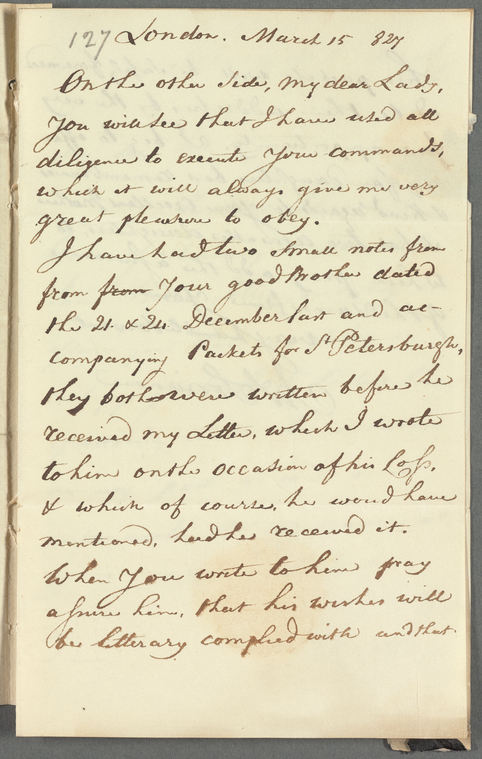 127 London. March 15 827
On the other Side, my dear Lady,
You will see that I have used all
diligence to execute Your commands,
which it will always give me very
great pleasure to obey.
I have had two small notes from
from from Your good Brother dated
the 21. & 24. December last and ac-
companying Packets for St Petersburgh,
they both were written before he
received my Letter, which I wrote
to him on the occasion of his Loss,
& which of course, he would have
mentioned, had he received it.
When You write to him pray
assure him, that his wishes will
be litterary complied with und that